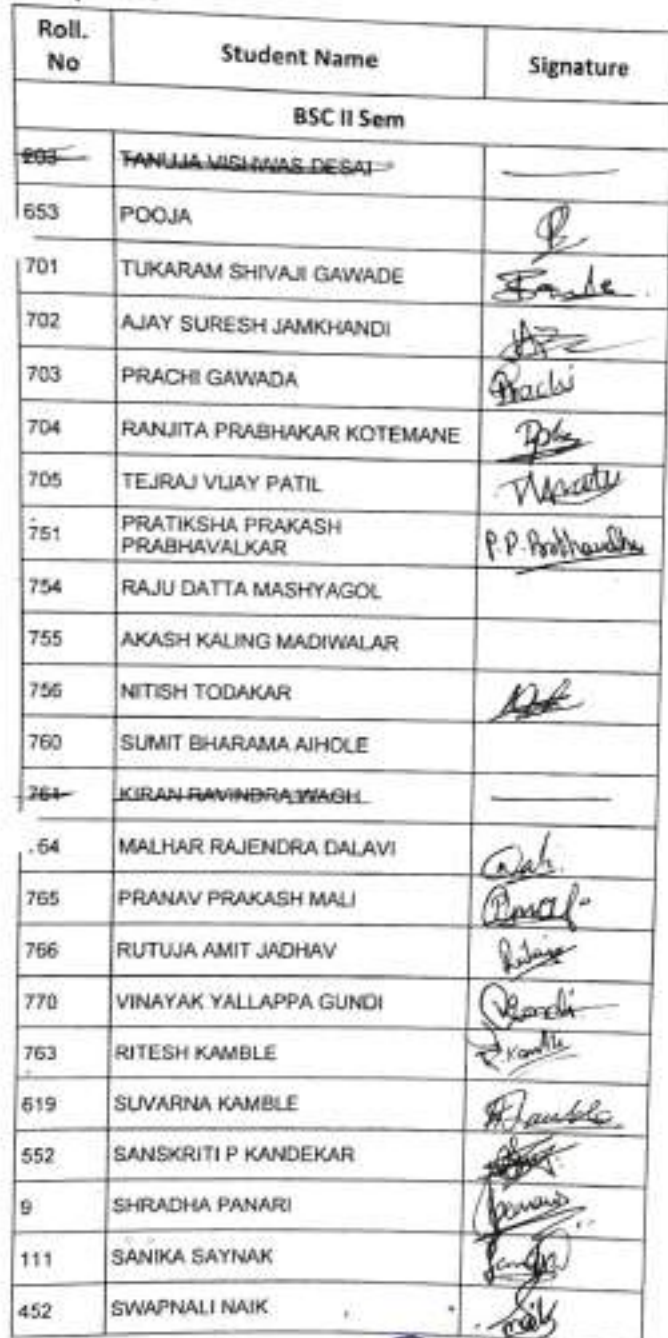 Roll. No Student Name Signature
BSC II Sem
203 TANUJA VISHWAS DESAI
653 POOJA
701 TUKARAM SHIVAJI GAWADE
702 AJAY SURESH JAMKHANDI
703 PRACHI GAWADA Prachi
704 RANJITA PRABHAKAR KOTEMANE
705 TEJRAJ VIJAY PATIL
751 PRATIKSHA PRAKASH PRABHAVALKAR P.P.
754 RAJU DATTA MASHYAGOL
755 AKASH KALING MADIWALAR
756 NITISH TODAKAR
760 SUMIT BHARAMA AIHOLE
761 KIRAN RAVINDRA WAGH
64 MALHAR RAJENDRA DALAVI
765 PRANAV PRAKASH MALI
766 RUTUJA AMIT JADHAV
770 VINAYAK YALLAPPA GUNDI
763 RITESH KAMBLE
619 SUVARNA KAMBLE
552 SANSKRITI P KANDEKAR
9 SHRADHA PANARI
111 SANIKA SAYNAK
452 SWAPNALI NAIK